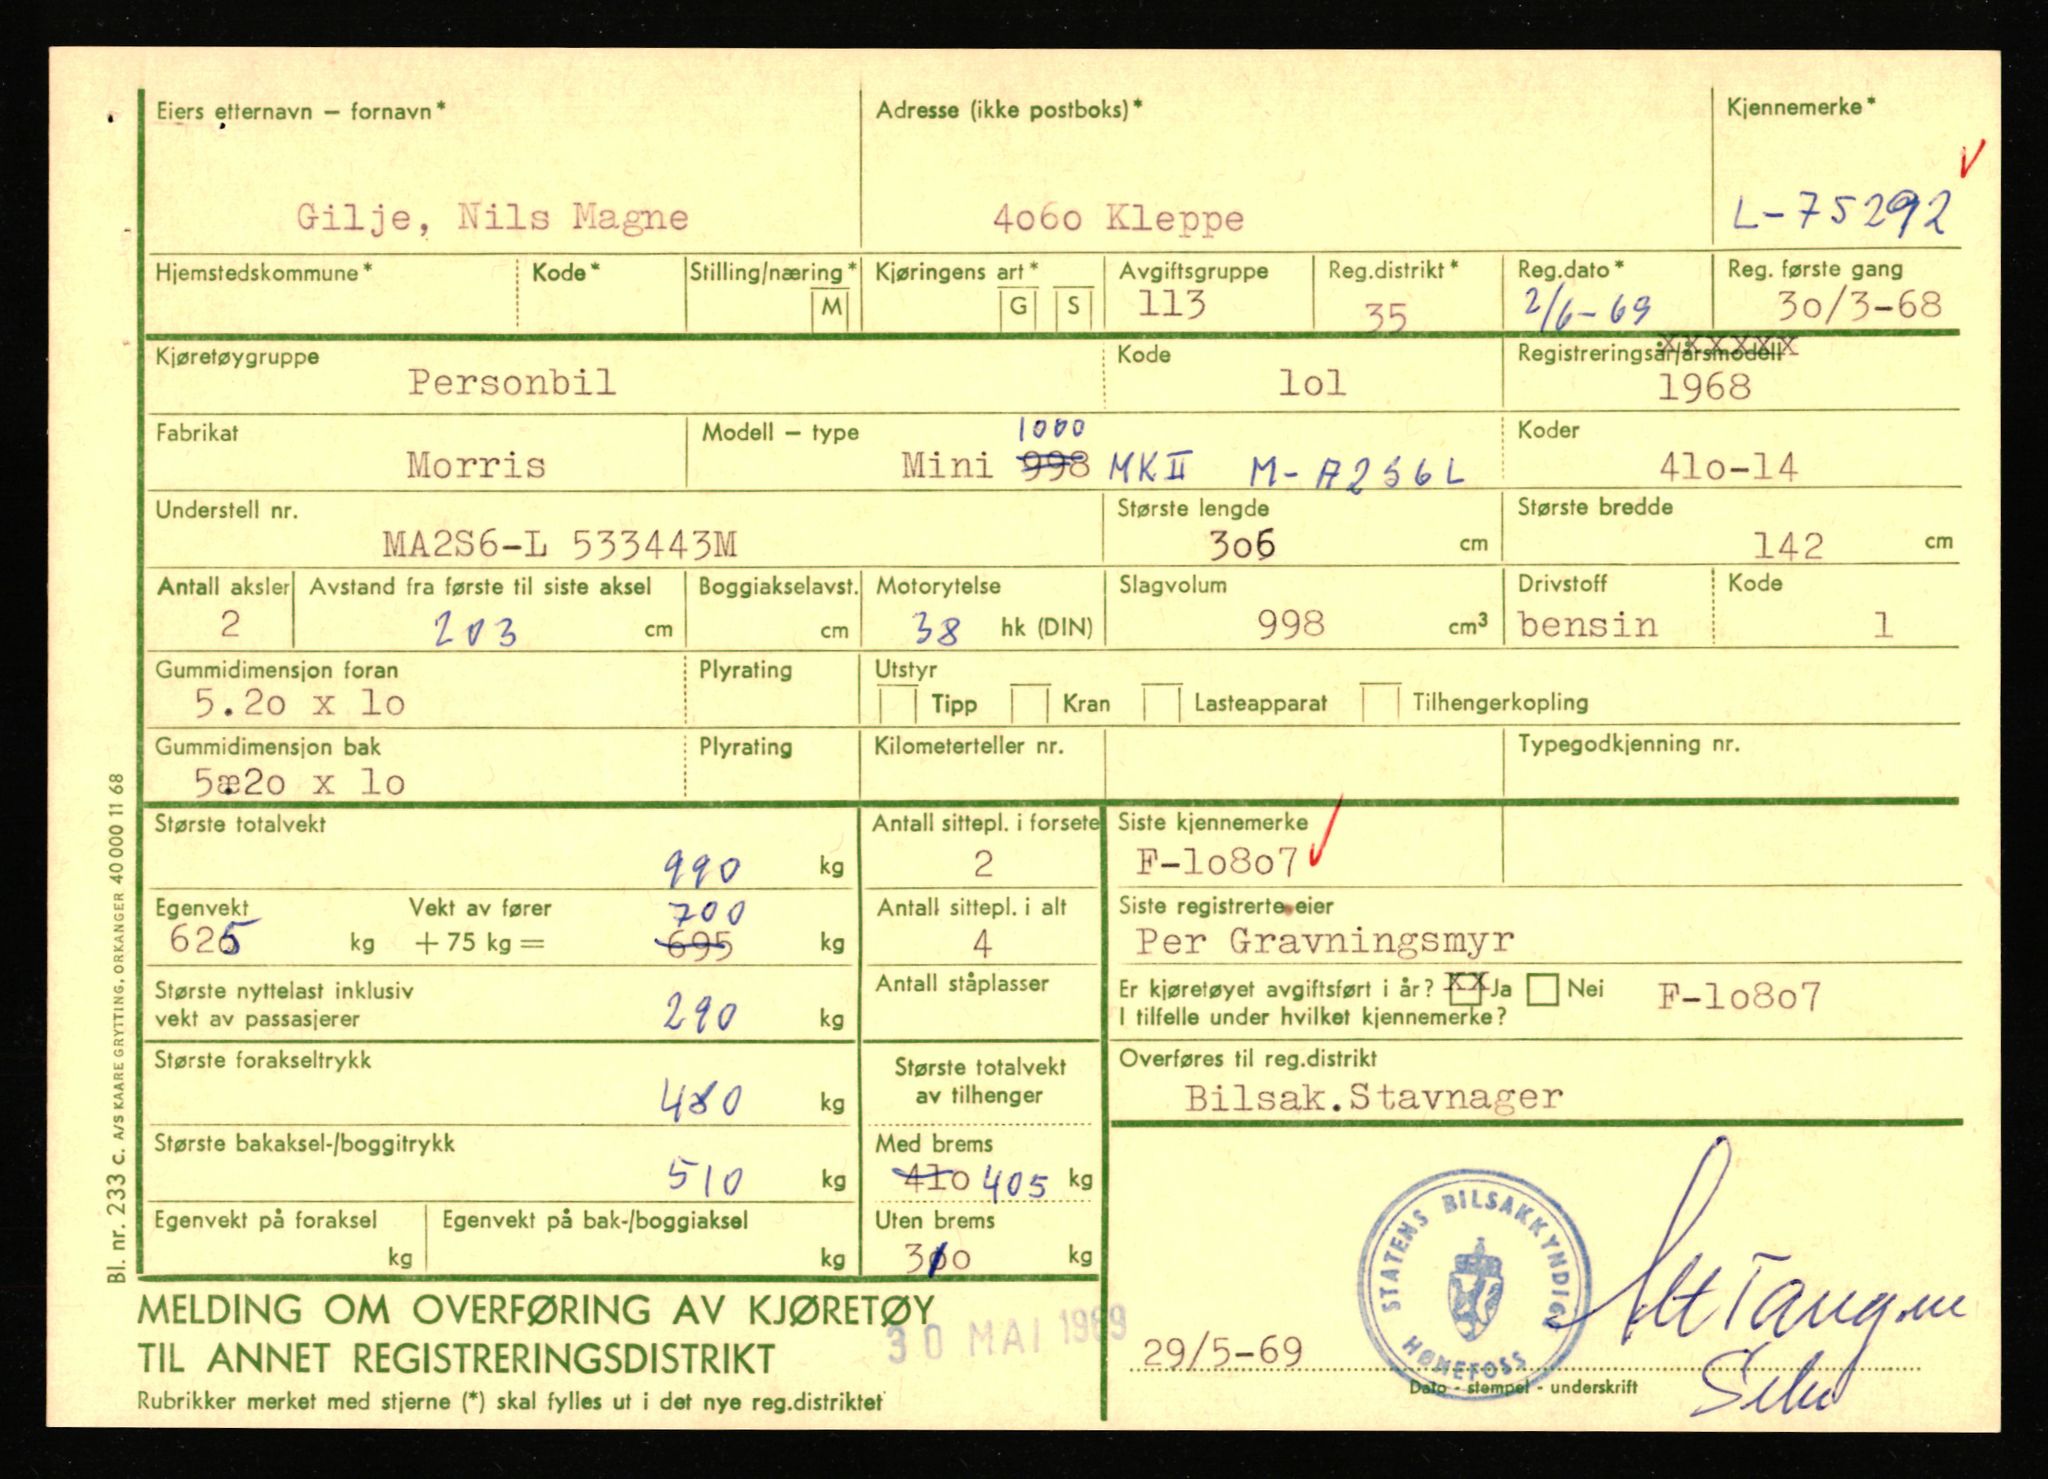 Eiers etternavn – fornavn* Adresse (ikke postboks)* Kjennemerke*
Gilje, Nils Magne 4o6o Kleppe L-75292
Hjemstedskommune* Kode* Stilling/næring* Kjøringens art* Avgiftsgruppe Reg.distrikt* Reg.dato* Reg. første gang
M G S 113 35 2/6-69 3o/3-68
Kjøretøygruppe Kode Registreringsår/årsmodell
xxxxxx
Personbil lol 1968
Fabrikat Modell – type 1000 Koder
Morris Mini 998 MK II M-A2S6L 41o-14
Understell nr. Største lengde Største bredde
MA2S6-L 533443M 3o6 cm 142 cm
Antall aksler Avstand fra første til siste aksel Boggiakselavst. Motorytelse Slagvolum Drivstoff Kode
2 203 cm cm 38 hk (DIN) 998 cm³ bensin 1
Gummidimensjon foran Plyrating Utstyr
5.2o x lo Tipp Kran Lasteapparat Tilhengerkopling
Gummidimensjon bak Plyrating Kilometerteller nr. Typegodkjenning nr.
5æ2o x lo
Største totalvekt Antall sittepl. i forsete Siste kjennemerke
990 kg 2 F-lo8o7
Egenvekt Vekt av fører 700 Antall sittepl. i alt Siste registrerte eier
625 kg + 75 kg = 695 kg 4 Per Gravningsmyr
Største nyttelast inklusiv Antall ståplasser Er kjøretøyet avgiftsført i år? XX Ja Nei F-lo8o7
vekt av passasjerer 290 kg I tilfelle under hvilket kjennemerke?
Største forakseltrykk Største totalvekt Overføres til reg.distrikt
480 kg av tilhenger Bilsak.Stavnager
Største bakaksel-/boggitrykk Med brems
510 kg 41o 405 kg
Egenvekt på foraksel Egenvekt på bak-/boggiaksel Uten brems
kg kg 310 kg
STATENS BILSAKKYNDIGE
HØNEFOSS
MELDING OM OVERFØRING AV KJØRETØY
30 MAI 1969
TIL ANNET REGISTRERINGSDISTRIKT 29/5-69
Dato - stempel - underskrift
Rubrikker merket med stjerne (*) skal fylles ut i det nye reg.distriktet
Bl. nr. 233 c. A/S KAARE GRYTTING, ORKANGER 40 000 11 68